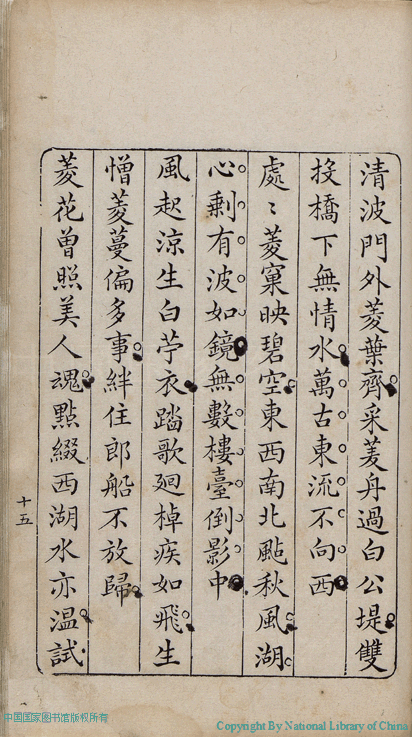 清波門外菱葉齊采菱舟過白公堤雙
投橋下無情水萬古東流不向西
處〻菱窠映碧空東西南北颭秋風湖
心剩有波如鏡無數樓臺倒影中
風起涼生白苧衣踏歌廻棹疾如飛生
憎菱蔓偏多事絆住郎船不放歸
菱花曾照美人魂點綴西湖水亦温試
十五
中国国家图书馆版权所有
Copyright By National Library of China